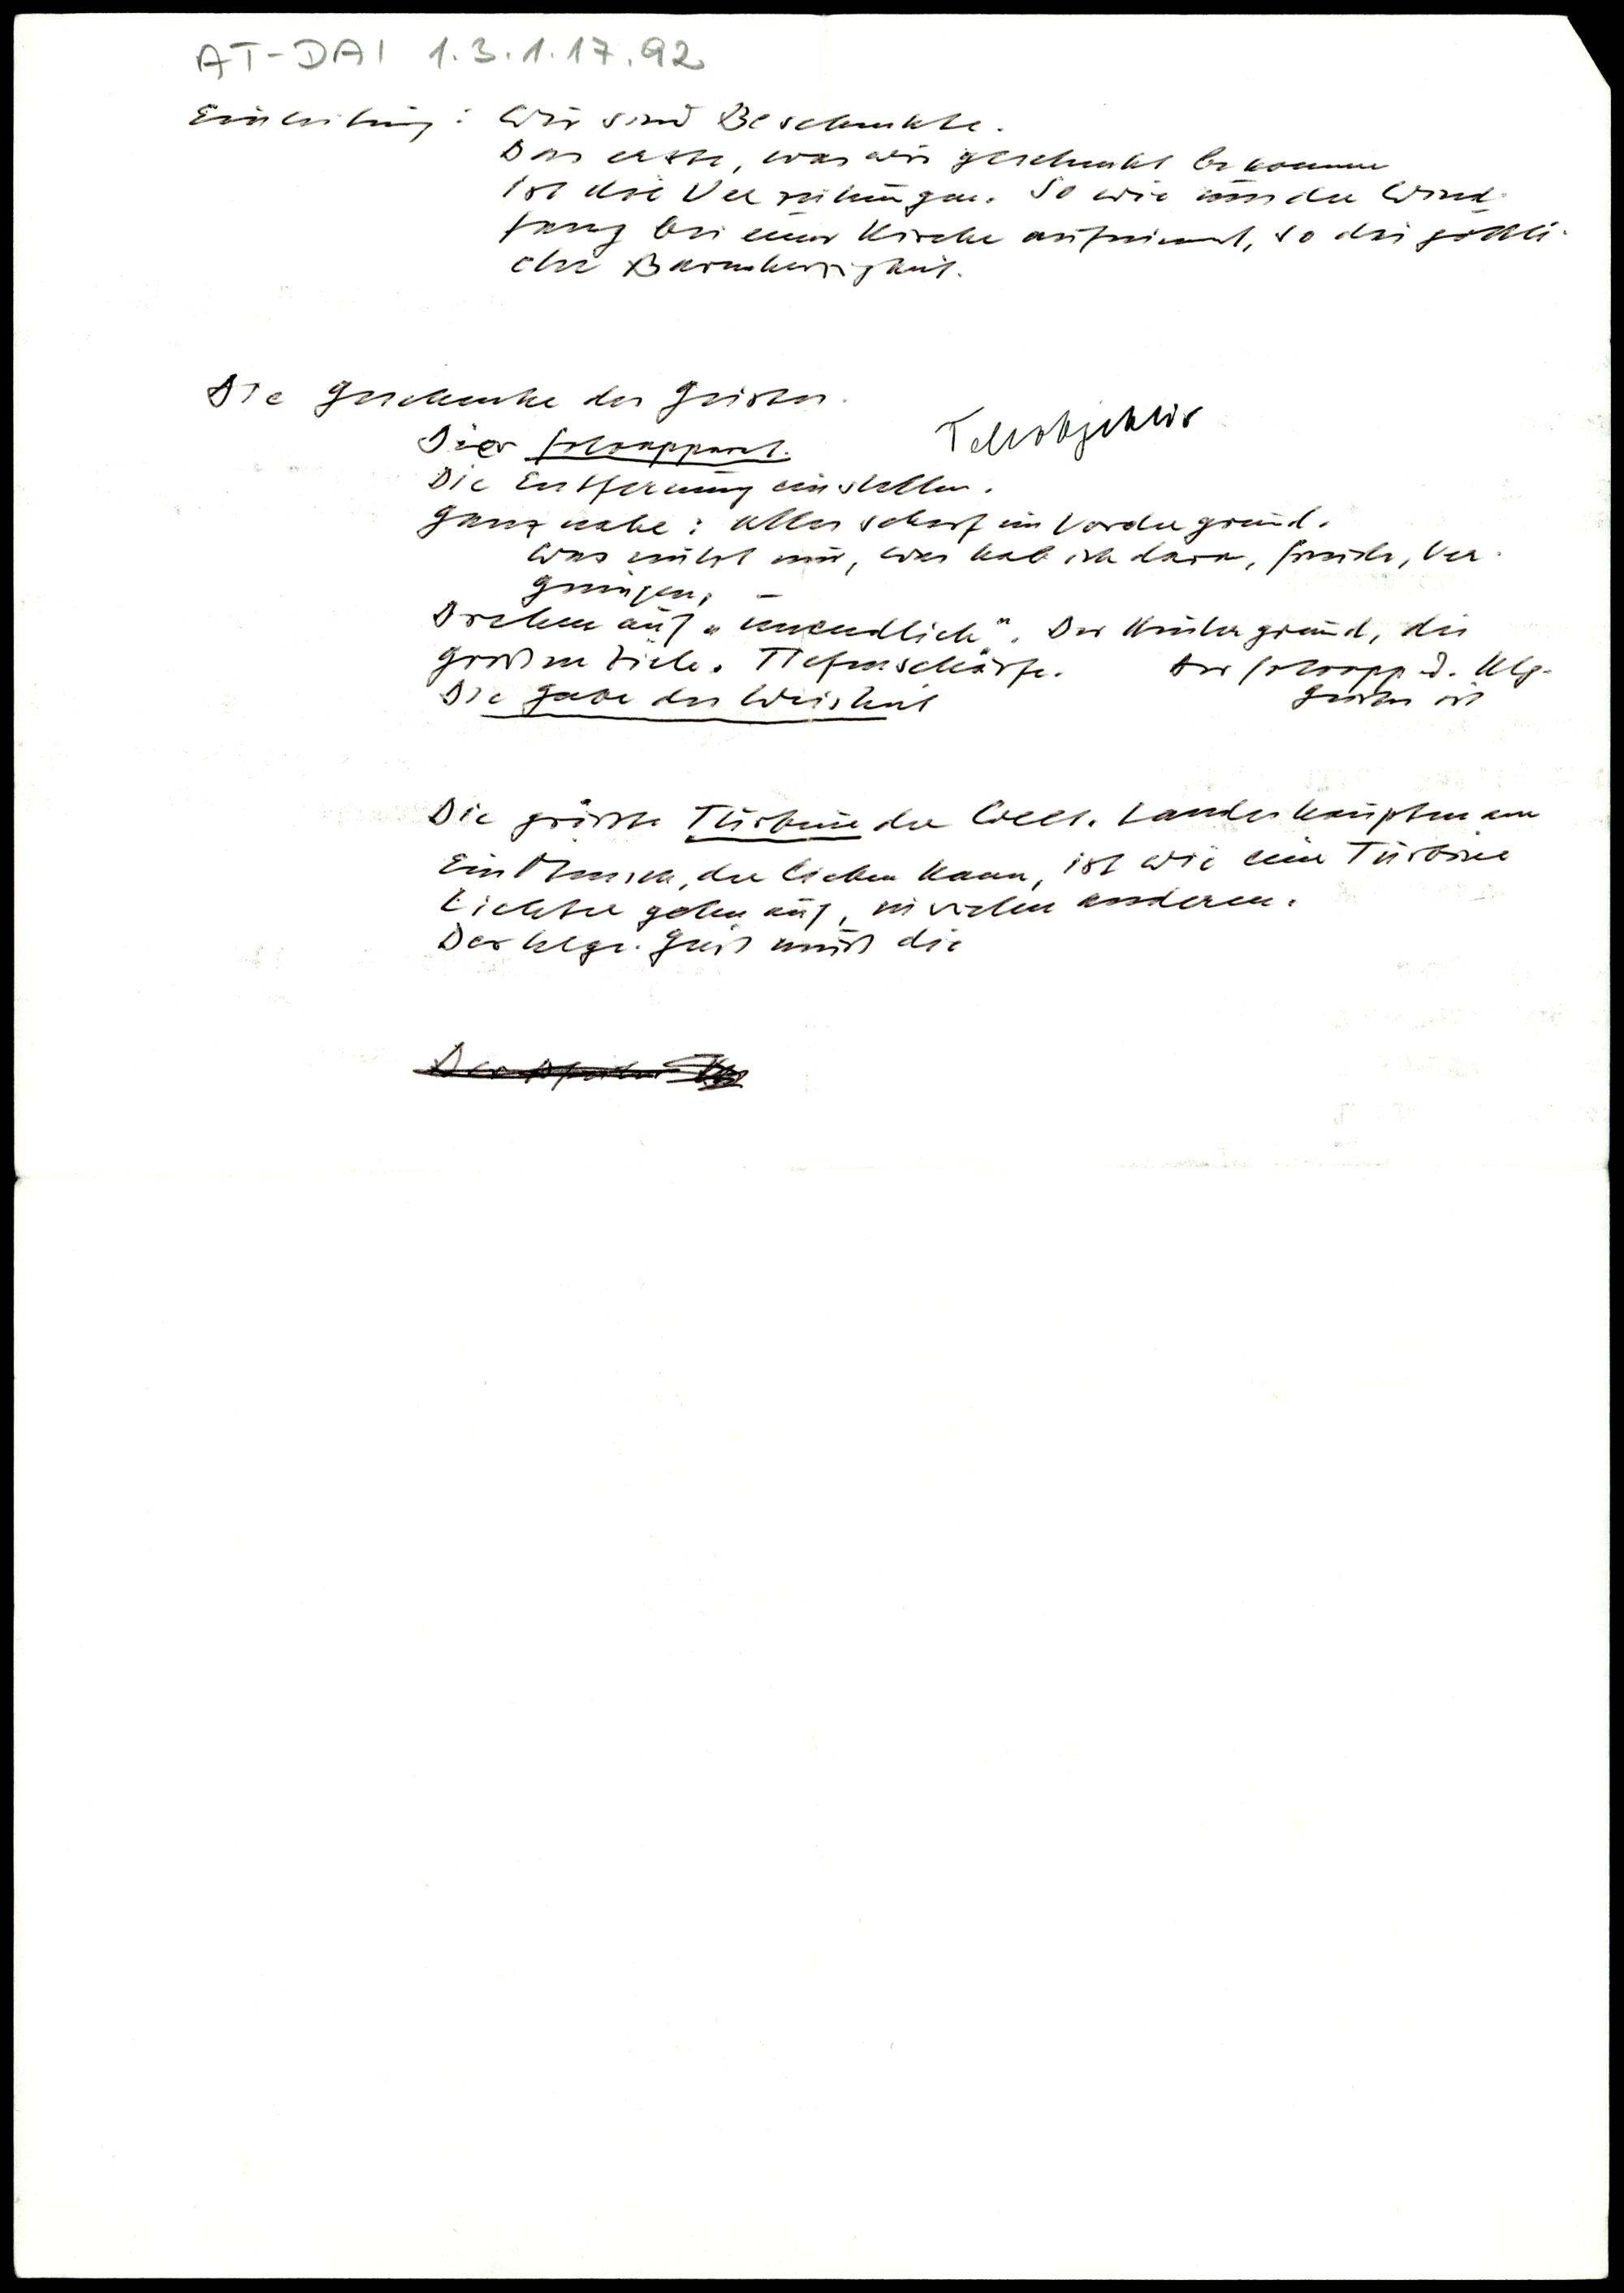 AT-DAI 1.3.1.17.92
Einleitung: Wir sind Beschenkte.
Das erste, was wir geschenkt bekommen
ist die Verzeihungen. So wie uns der Wind-
fang bei einer Kirche aufnimmt, so die göttli-
che Barmherzigkeit.
Die Geschenke des Geistes.
Der Fotoapparat. Teleobjektiv
Die Entfernung einstellen.
Ganz nahe: alles scharf im Vordergrund.
Was nützt mir, was hab ich davon, Freude, Ver-
gnügen,
Drehen auf "unendlich". Der Hintergrund, die
großen Ziele. Tiefenschärfe. Der Fotoapp d. Hlg.
Die Gabe der Weisheit Geistes ist
Die größte Turbine der Welt. Landeshauptmann
Ein Mensch, der lieben kann, ist wie eine Turbine
Lichter gehen auf, in vielen anderen.
Der hlge. Geist muß die